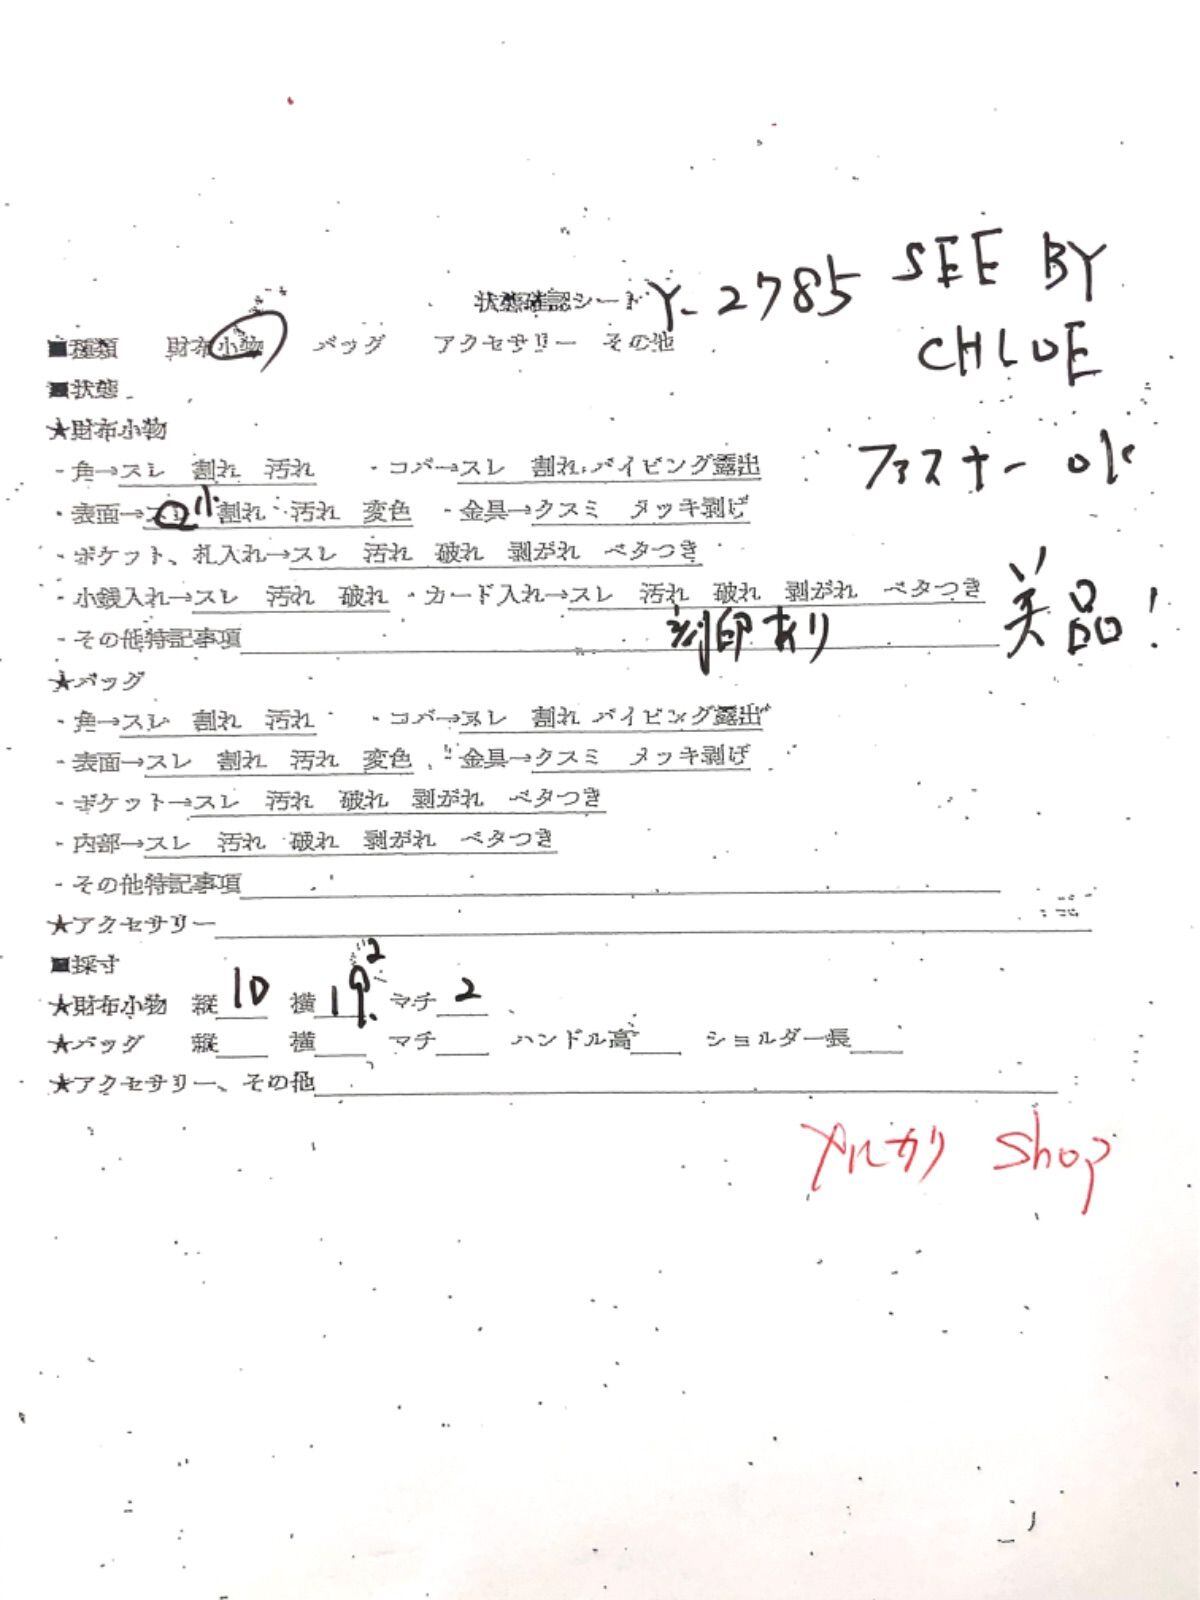 状態確認シート Y-2785 SEE BY
CHLOE
■種類 財布小物 バッグ アクセサリー その他
■状態
★財布小物
・角→スレ 割れ 汚れ ・コバ→スレ 割れ パイピング露出
ファスナー OK
・表面→スレ 小 割れ 汚れ 変色 ・金具→クスミ メッキ剥げ
・ポケット、札入れ→スレ 汚れ 破れ 剥がれ ベタつき
・小銭入れ→スレ 汚れ 破れ ・カード入れ→スレ 汚れ 破れ 剥がれ ベタつき
美品!
・その他特記事項 刻印あり
★バッグ
・角→スレ 割れ 汚れ ・コバ→スレ 割れ パイピング露出
・表面→スレ 割れ 汚れ 変色 ・金具→クスミ メッキ剥げ
・ポケット→スレ 汚れ 破れ 剥がれ ベタつき
・内部→スレ 汚れ 破れ 剥がれ ベタつき
・その他特記事項
★アクセサリー
■採寸
★財布小物 縦 10 横 19.2 マチ 2
★バッグ 縦 横 マチ ハンドル高 ショルダー長
★アクセサリー、その他
メルカリ Shop